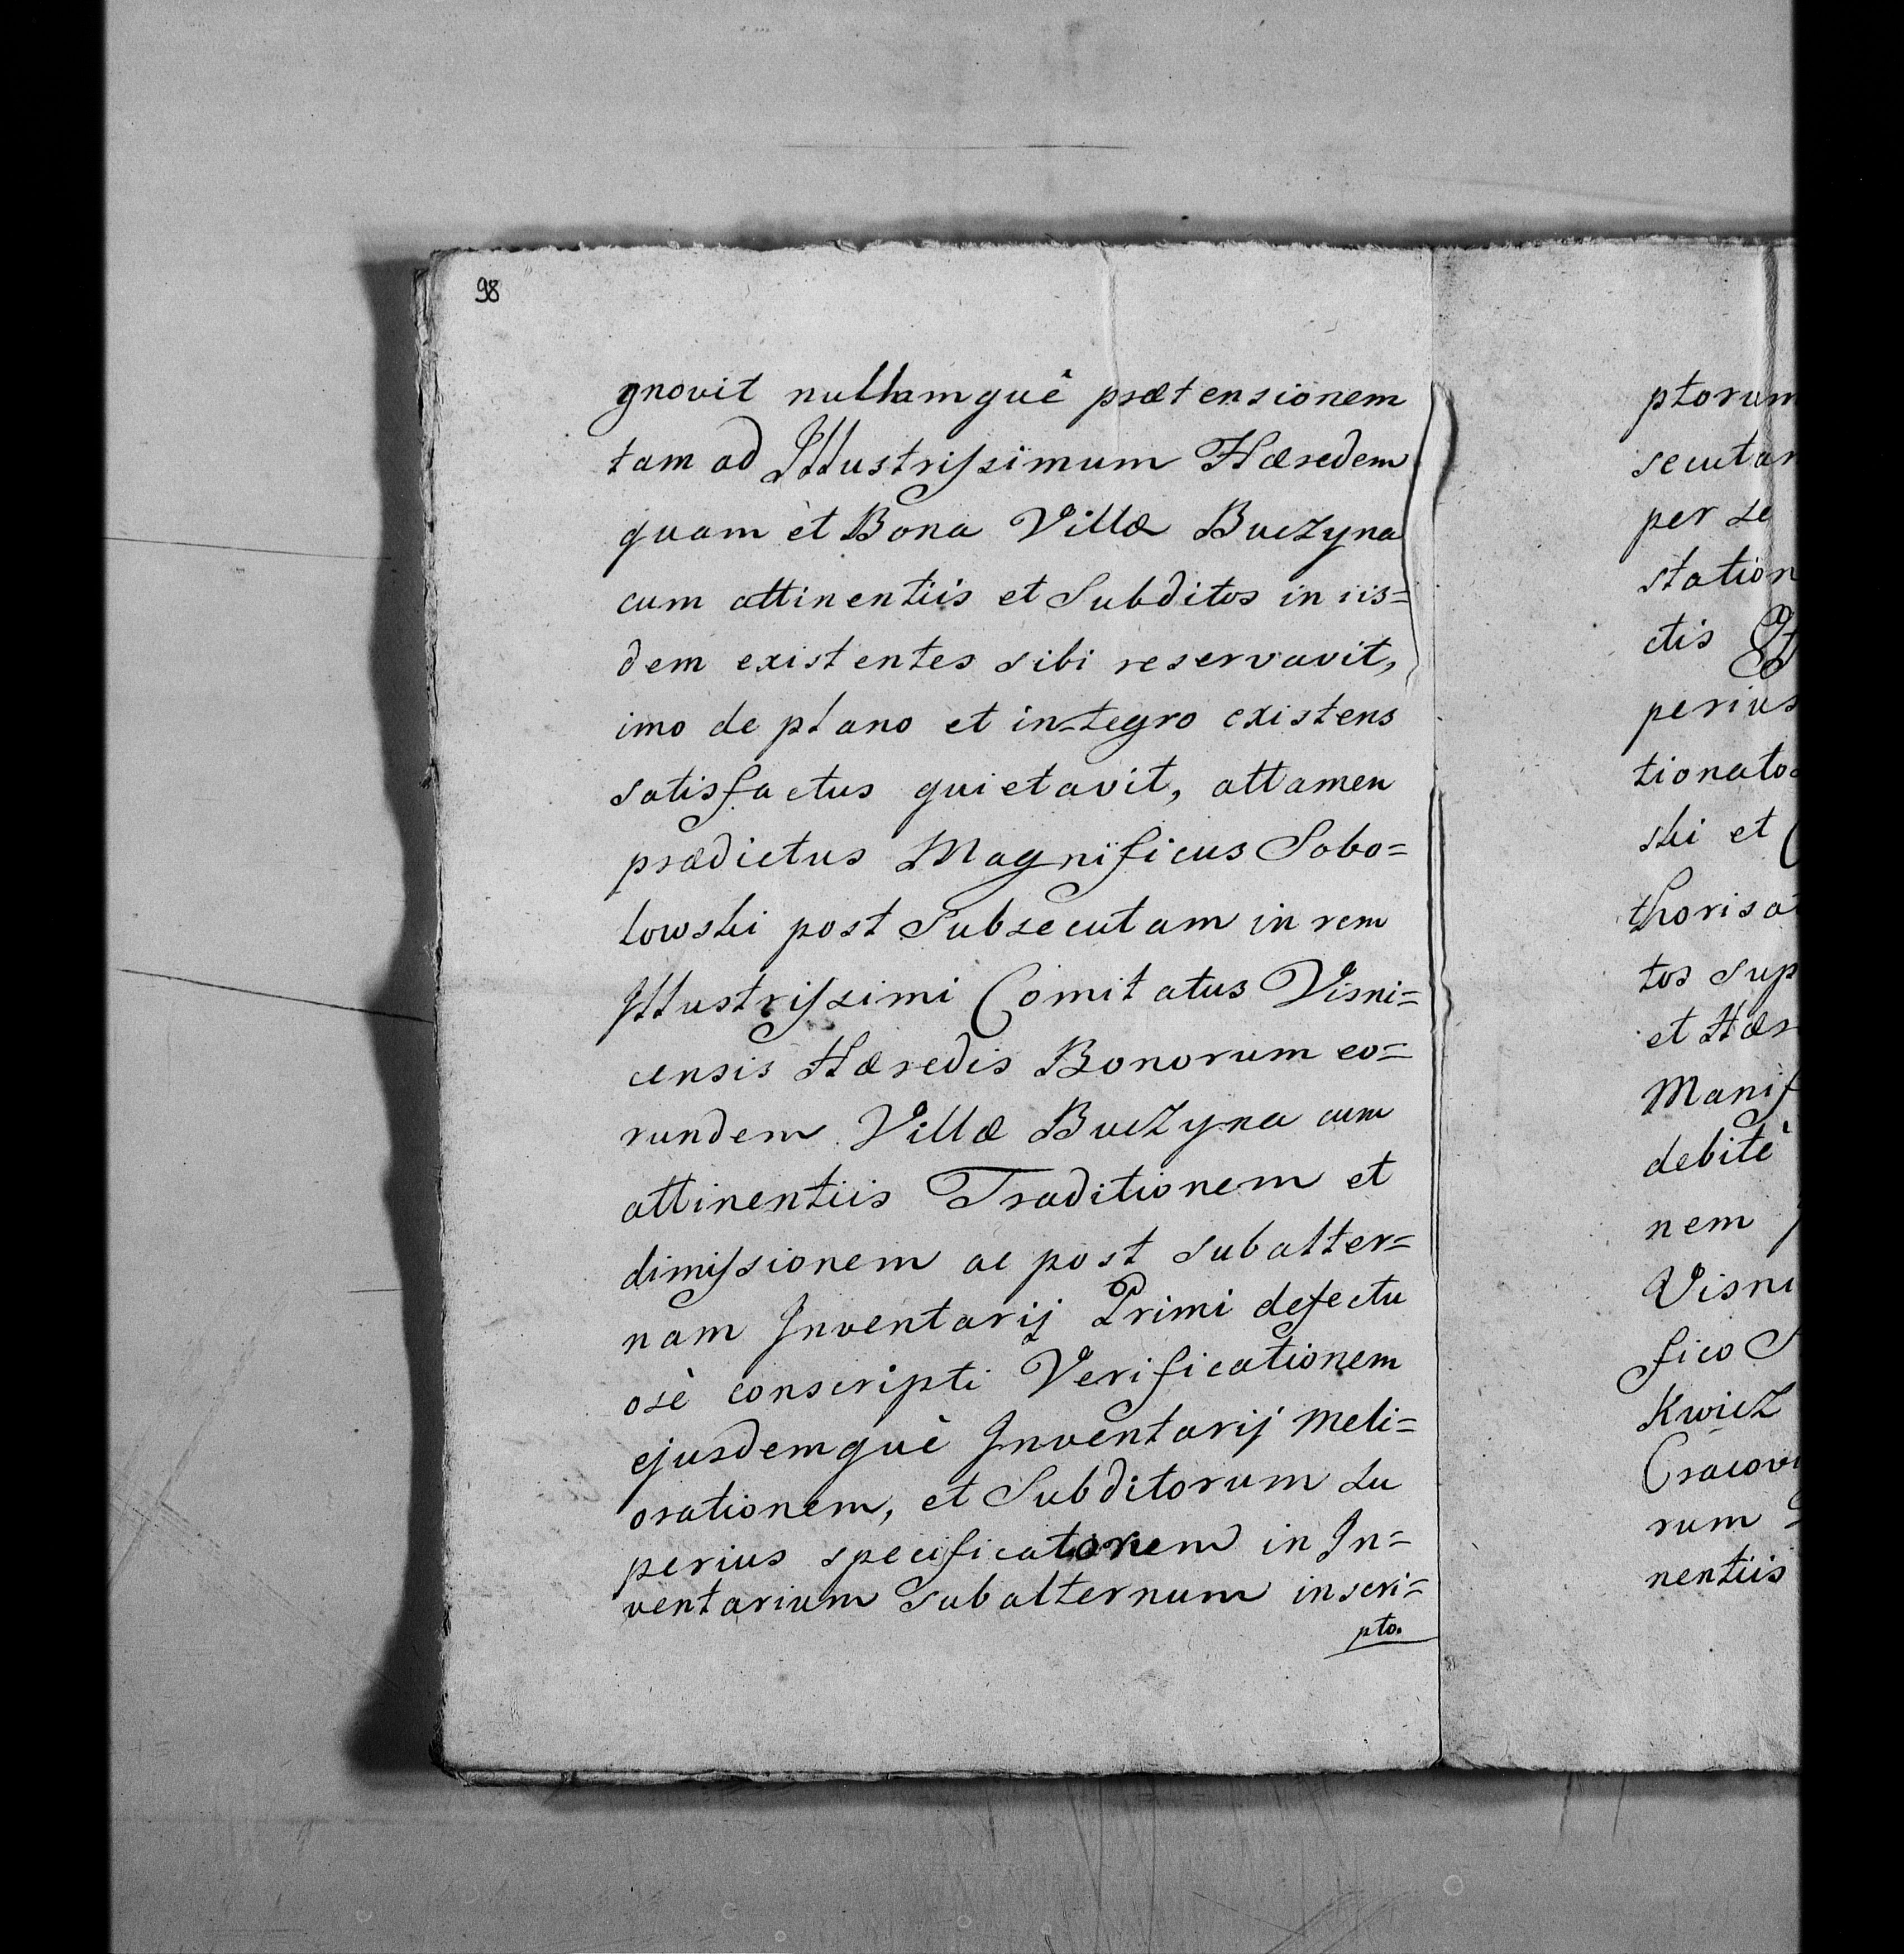 98
gnovit nullamquè prætensionem
tam ad Illustrissimum Hæredem
quam et Bona Villæ Buczyna
cum attinentiis et Subditos in iis=
dem existentes sibi reservavit,
imo de plano et integro existens
satisfactus quietavit, attamen
prædictus Magnificus Sobo=
lowski post Subsecutam in rem
Illustrissimi Comitatus Visni=
censis Hæredis Bonorum eo=
rundem Villæ Buczyna cum
attinentiis Traditionem et
dimissionem ac post subalter=
nam Inventarij Primi defectu
osè conscripti Verificationem
ejusdemquè Inventarij Meli=
orationem, et Subditorum su
perius specificatorem in In=
ventarium subalternum inscri=
pto.
ptorum
secutar
per se
station
ctis
perius
tionato
ski et
thorisat
tos sup
et Hær
Manif
debitè
nem
Visni
fico S
Kwicz
Cracovi
rum
nentiis